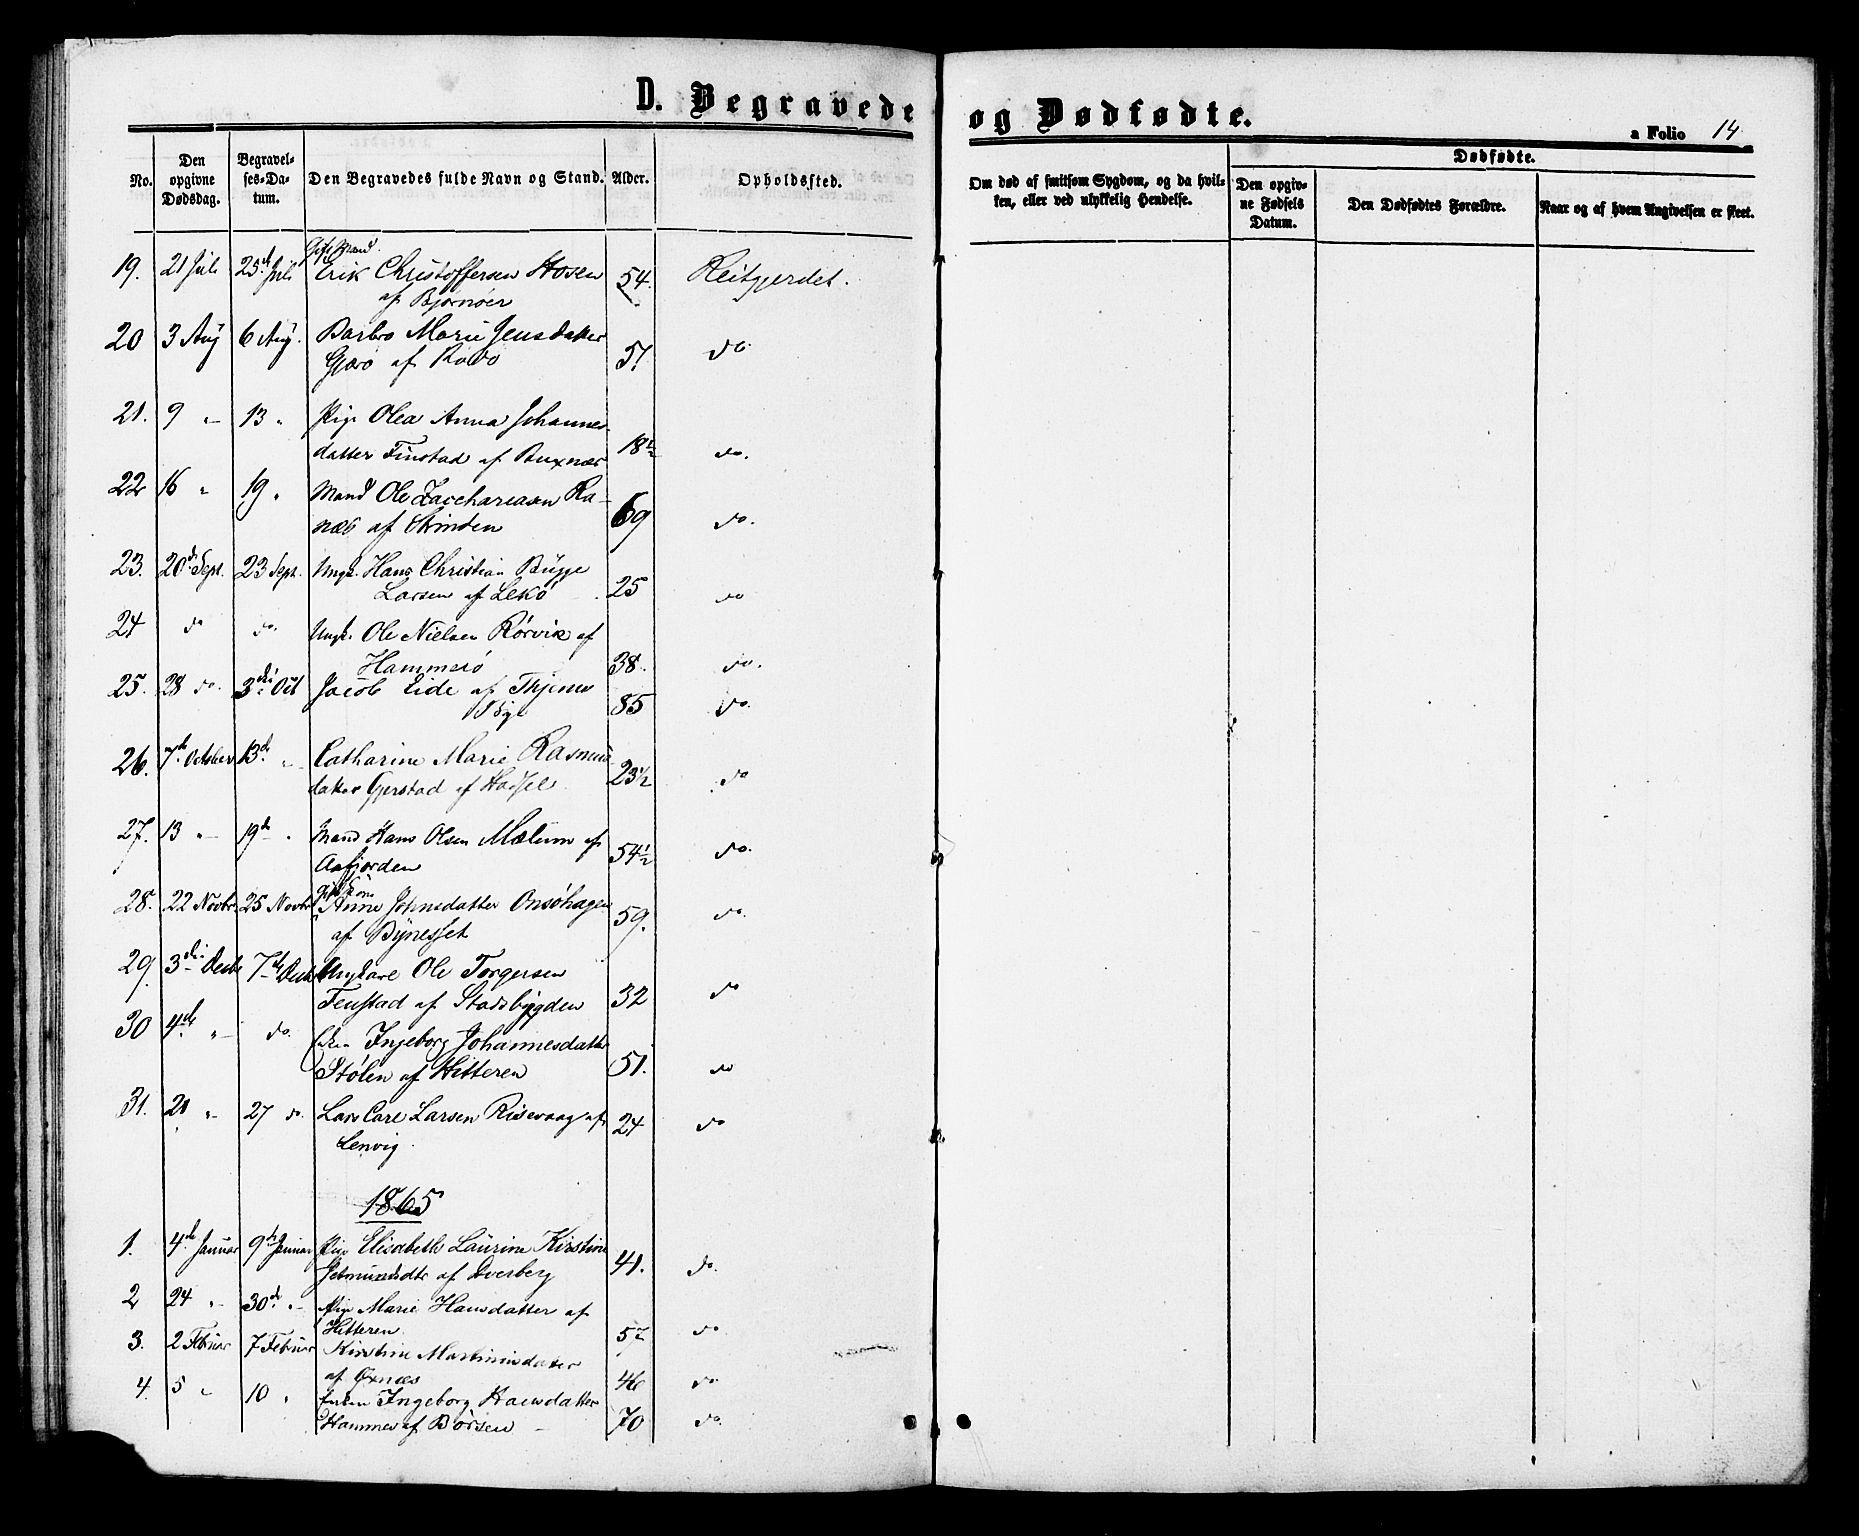 D. Begravede og Dødfødte.
a Folio 14
No.
Den opgivne Dødsdag.
Begravelses-Datum.
Den Begravedes fulde Navn og Stand.
Alder.
Opholdssted.
Om død af smitsom Sygdom, og da hvilken, eller ved ulykkelig Hendelse.
Dødfødte.
Den opgivne Fødsels Datum.
Den Dødfødtes Forældre.
Naar og af hvem Angivelsen er skeet.
Gift Mand
19. 21 Juli 25de Juli Erik Christoffersen Hosen 54. Reitgjerdet.
af Bjørnøer
20 3 Aug 6 Aug. Barbro Marie Jensdatter
af 57. do.
21. 9 " 13 " Pige Olea Anna Johannes-
datter Finstad af Buxnæs 18½ do.
22 16 " 19 " Mand Ole Zacchariasen Ra-
næs af Strinden 69 do.
23. 20de Sept. 23 Sept. Ungk. Hans Christian Bugge
Larsen af Lekø 25 do
24 do do. Ungk. Ole Nielsen Rørvik af
Hammerø 38. do.
25. 28 do. 3die Oct Jacob Eide af Thjems
85 do.
26. 7de October 13de " Catharine Marie Rasmus
datter Gjerstad af Hadsel 23½ do
27. 13 " 19de " Mand Hans Olsen Mælum af
Aafjorden 54½ do.
gift Kone
28. 22 Novbr. 25 Novbr Anne Johnsdatter Onsøhagen
af Bynesset 59. do.
29. 3die Decbr 7de Decbr Ungkare Ole Torgersen
Fenstad af Stadsbygden 32 do
30 4de " do. Enken Ingeborg Johannesdatter
Stølen af Hitteren 51. do
31. 21 " 27 do. Lars Carl Larsen Risevaag af
Lenvig 24 do
1865
1. 4de Januar 9de Januar Pige Elisabeth Laurine Kirstine
Jetmundsdtr af Dverberg 41. do.
2 24 " 30de " Pige Marie Hansdatter af
Hitteren 57 do
3. 2 Februar 7 Februar Kirstine Martinusdatter
af Øxnæs 46 do
4. 5 " 10 " Enken Ingeborg Hansdatter
Hammer af Børsen 70 do.